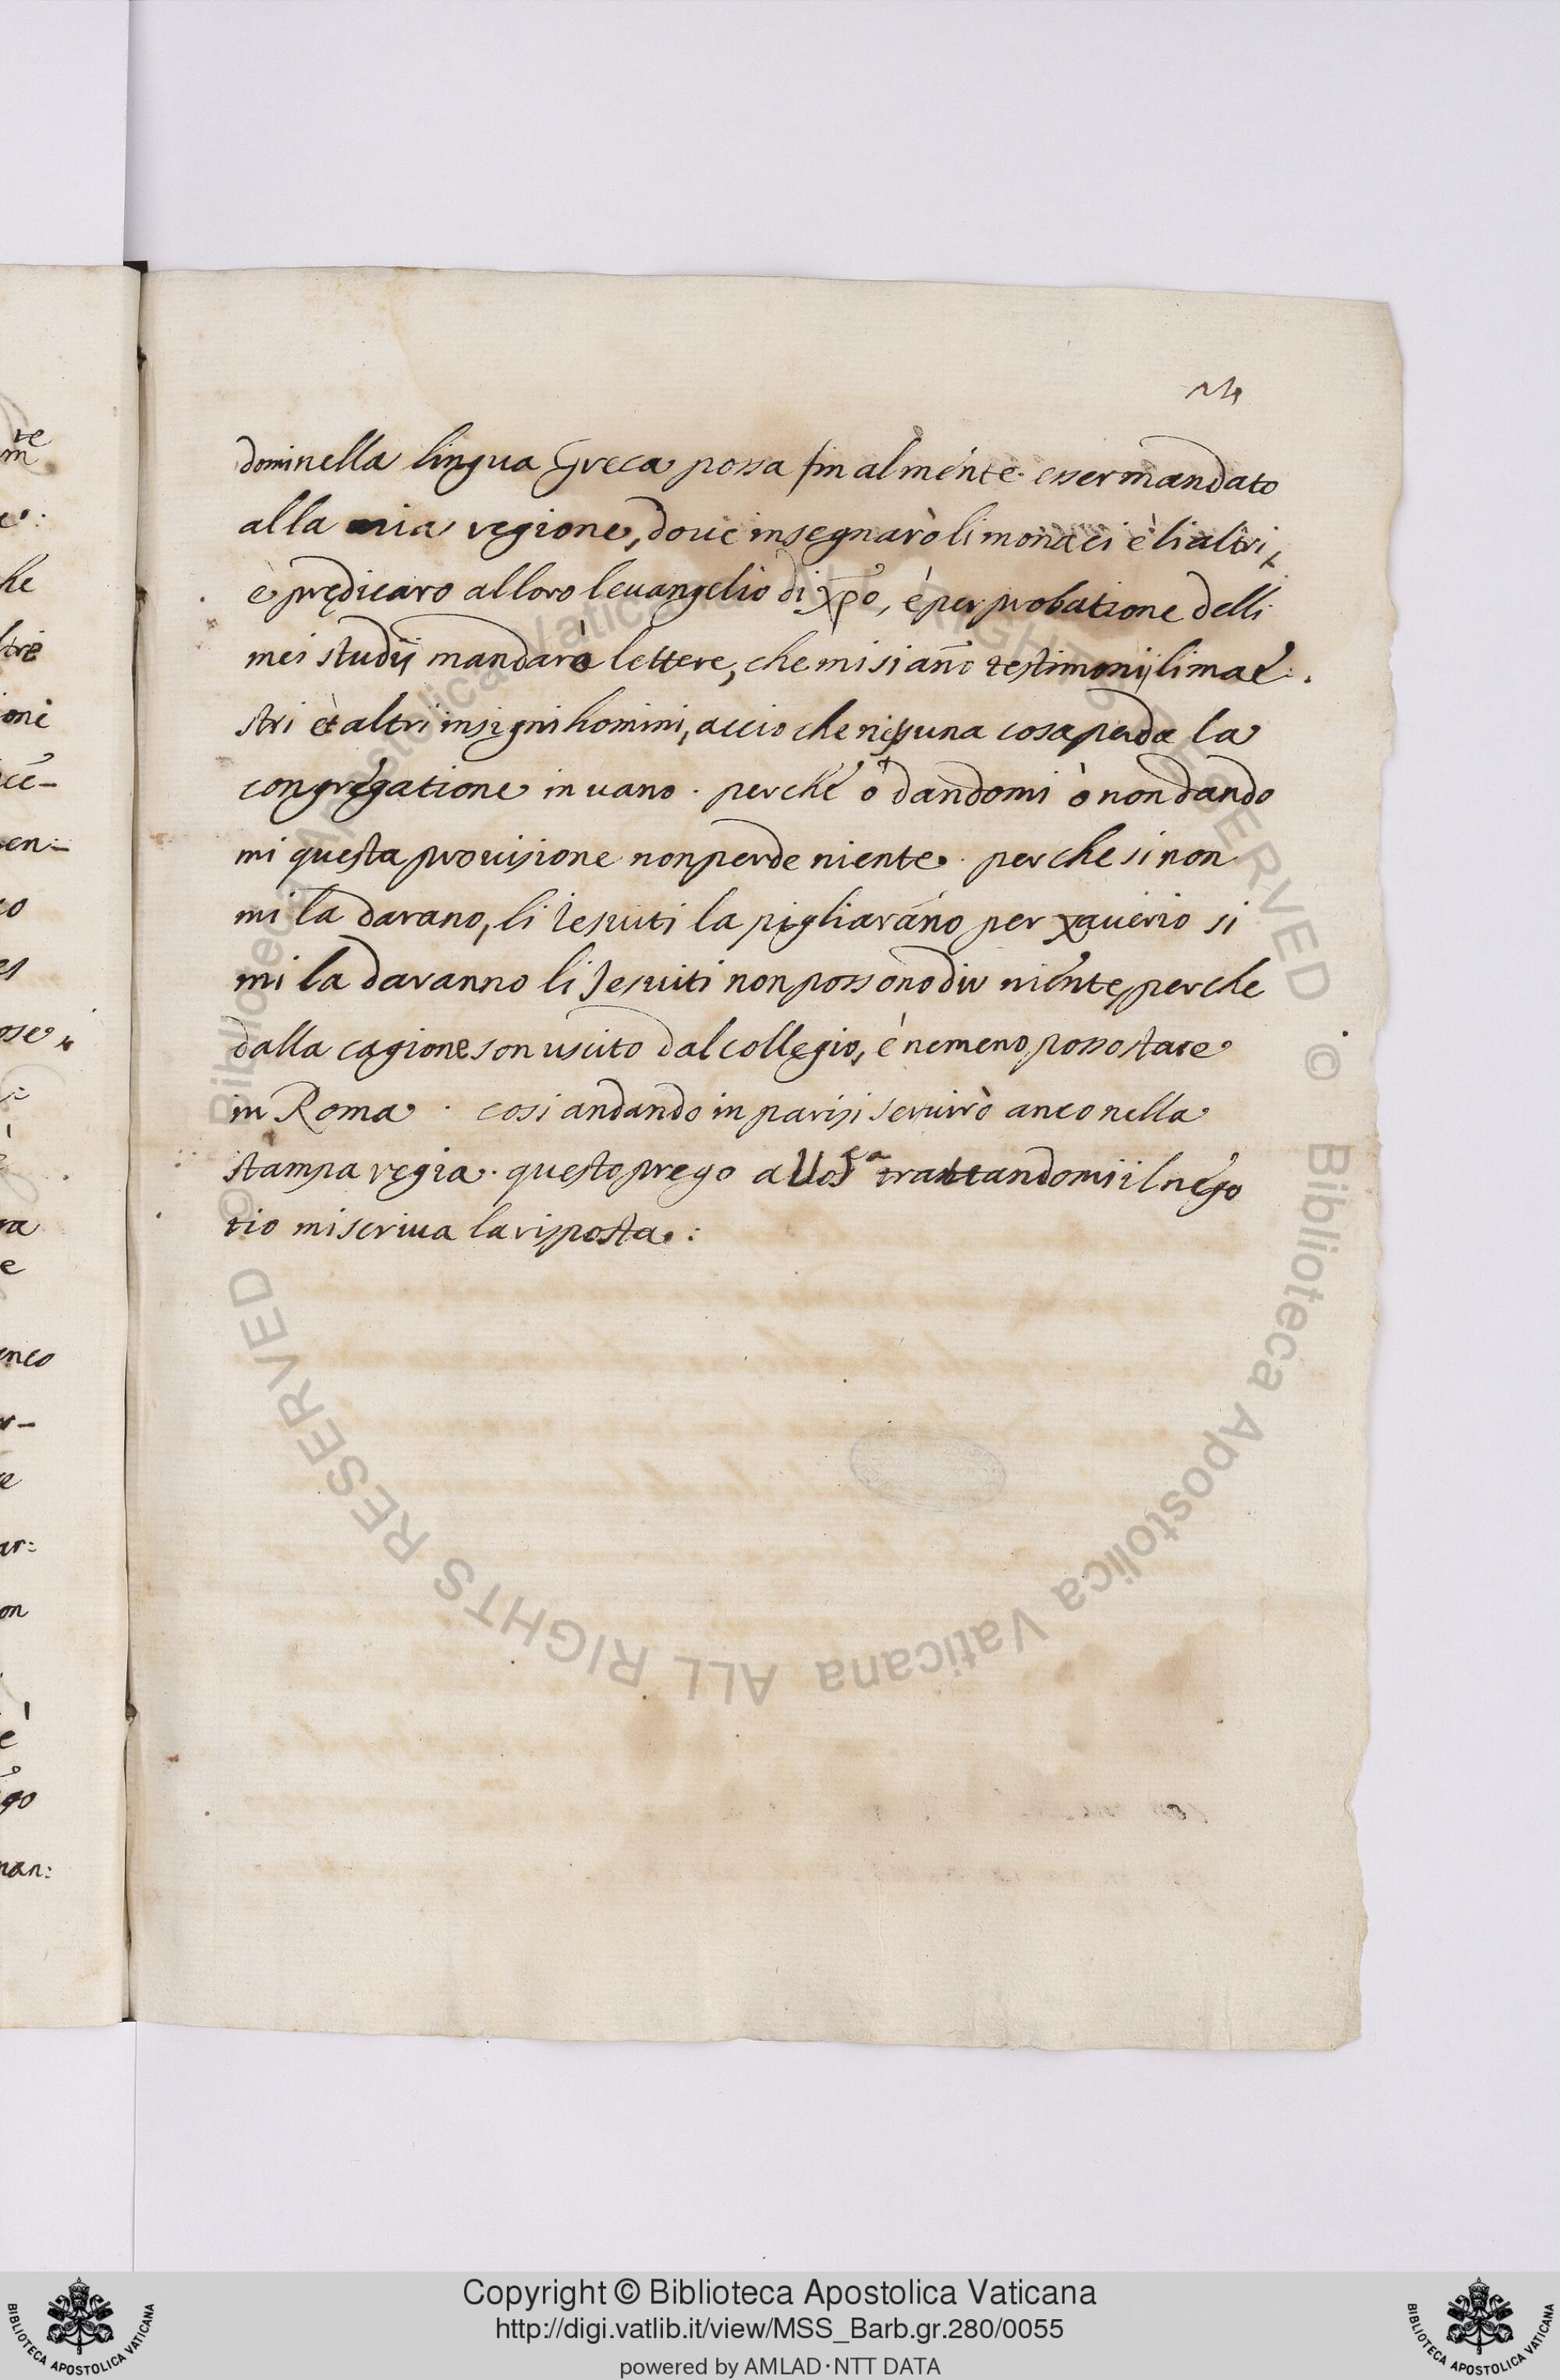 24
dominella lingua Greca possa finalmente esser mandato
alla mia regione, doue insegnarò li monaci è li altri,
è prędicaro alloro leuangelio di xp̄o, è per probatione delli
mei studij mandarò lettere, che mi siano testimonij li mae:
stri èt altri insigni homini, accio che nissuna cosa perda la
congregatione in uano. perche ò dandomi ò non dando
mi questa prouisione non perde niente. perche si non
mi la darano, li Iesuiti la pigliarano per xauerio si
mi la daranno li Iesuiti non possono dir niente, perche
dalla cagione son uscito dal collegio, è nemeno posso stare
in Roma. cosi andando in parisi seruirò anco nella
stampa regia. questo prego a Uos^ra trattandomi il nego
tio mi scriua la risposta.:
te
m
he
ltre
one
ce-
en:-
co
es
ose
ra
e
nco
r-
e
ar:
on
è
go
nan:
© Biblioteca Apostolica Vaticana ALL RIGHTS RESERVED © Biblioteca Apostolica Vaticana ALL RIGHTS RESERVED
Copyright © Biblioteca Apostolica Vaticana
http://digi.vatlib.it/view/MSS_Barb.gr.280/0055
powered by AMLAD·NTT DATA
BIBLIOTECA APOSTOLICA VATICANA
BIBLIOTECA APOSTOLICA VATICANA